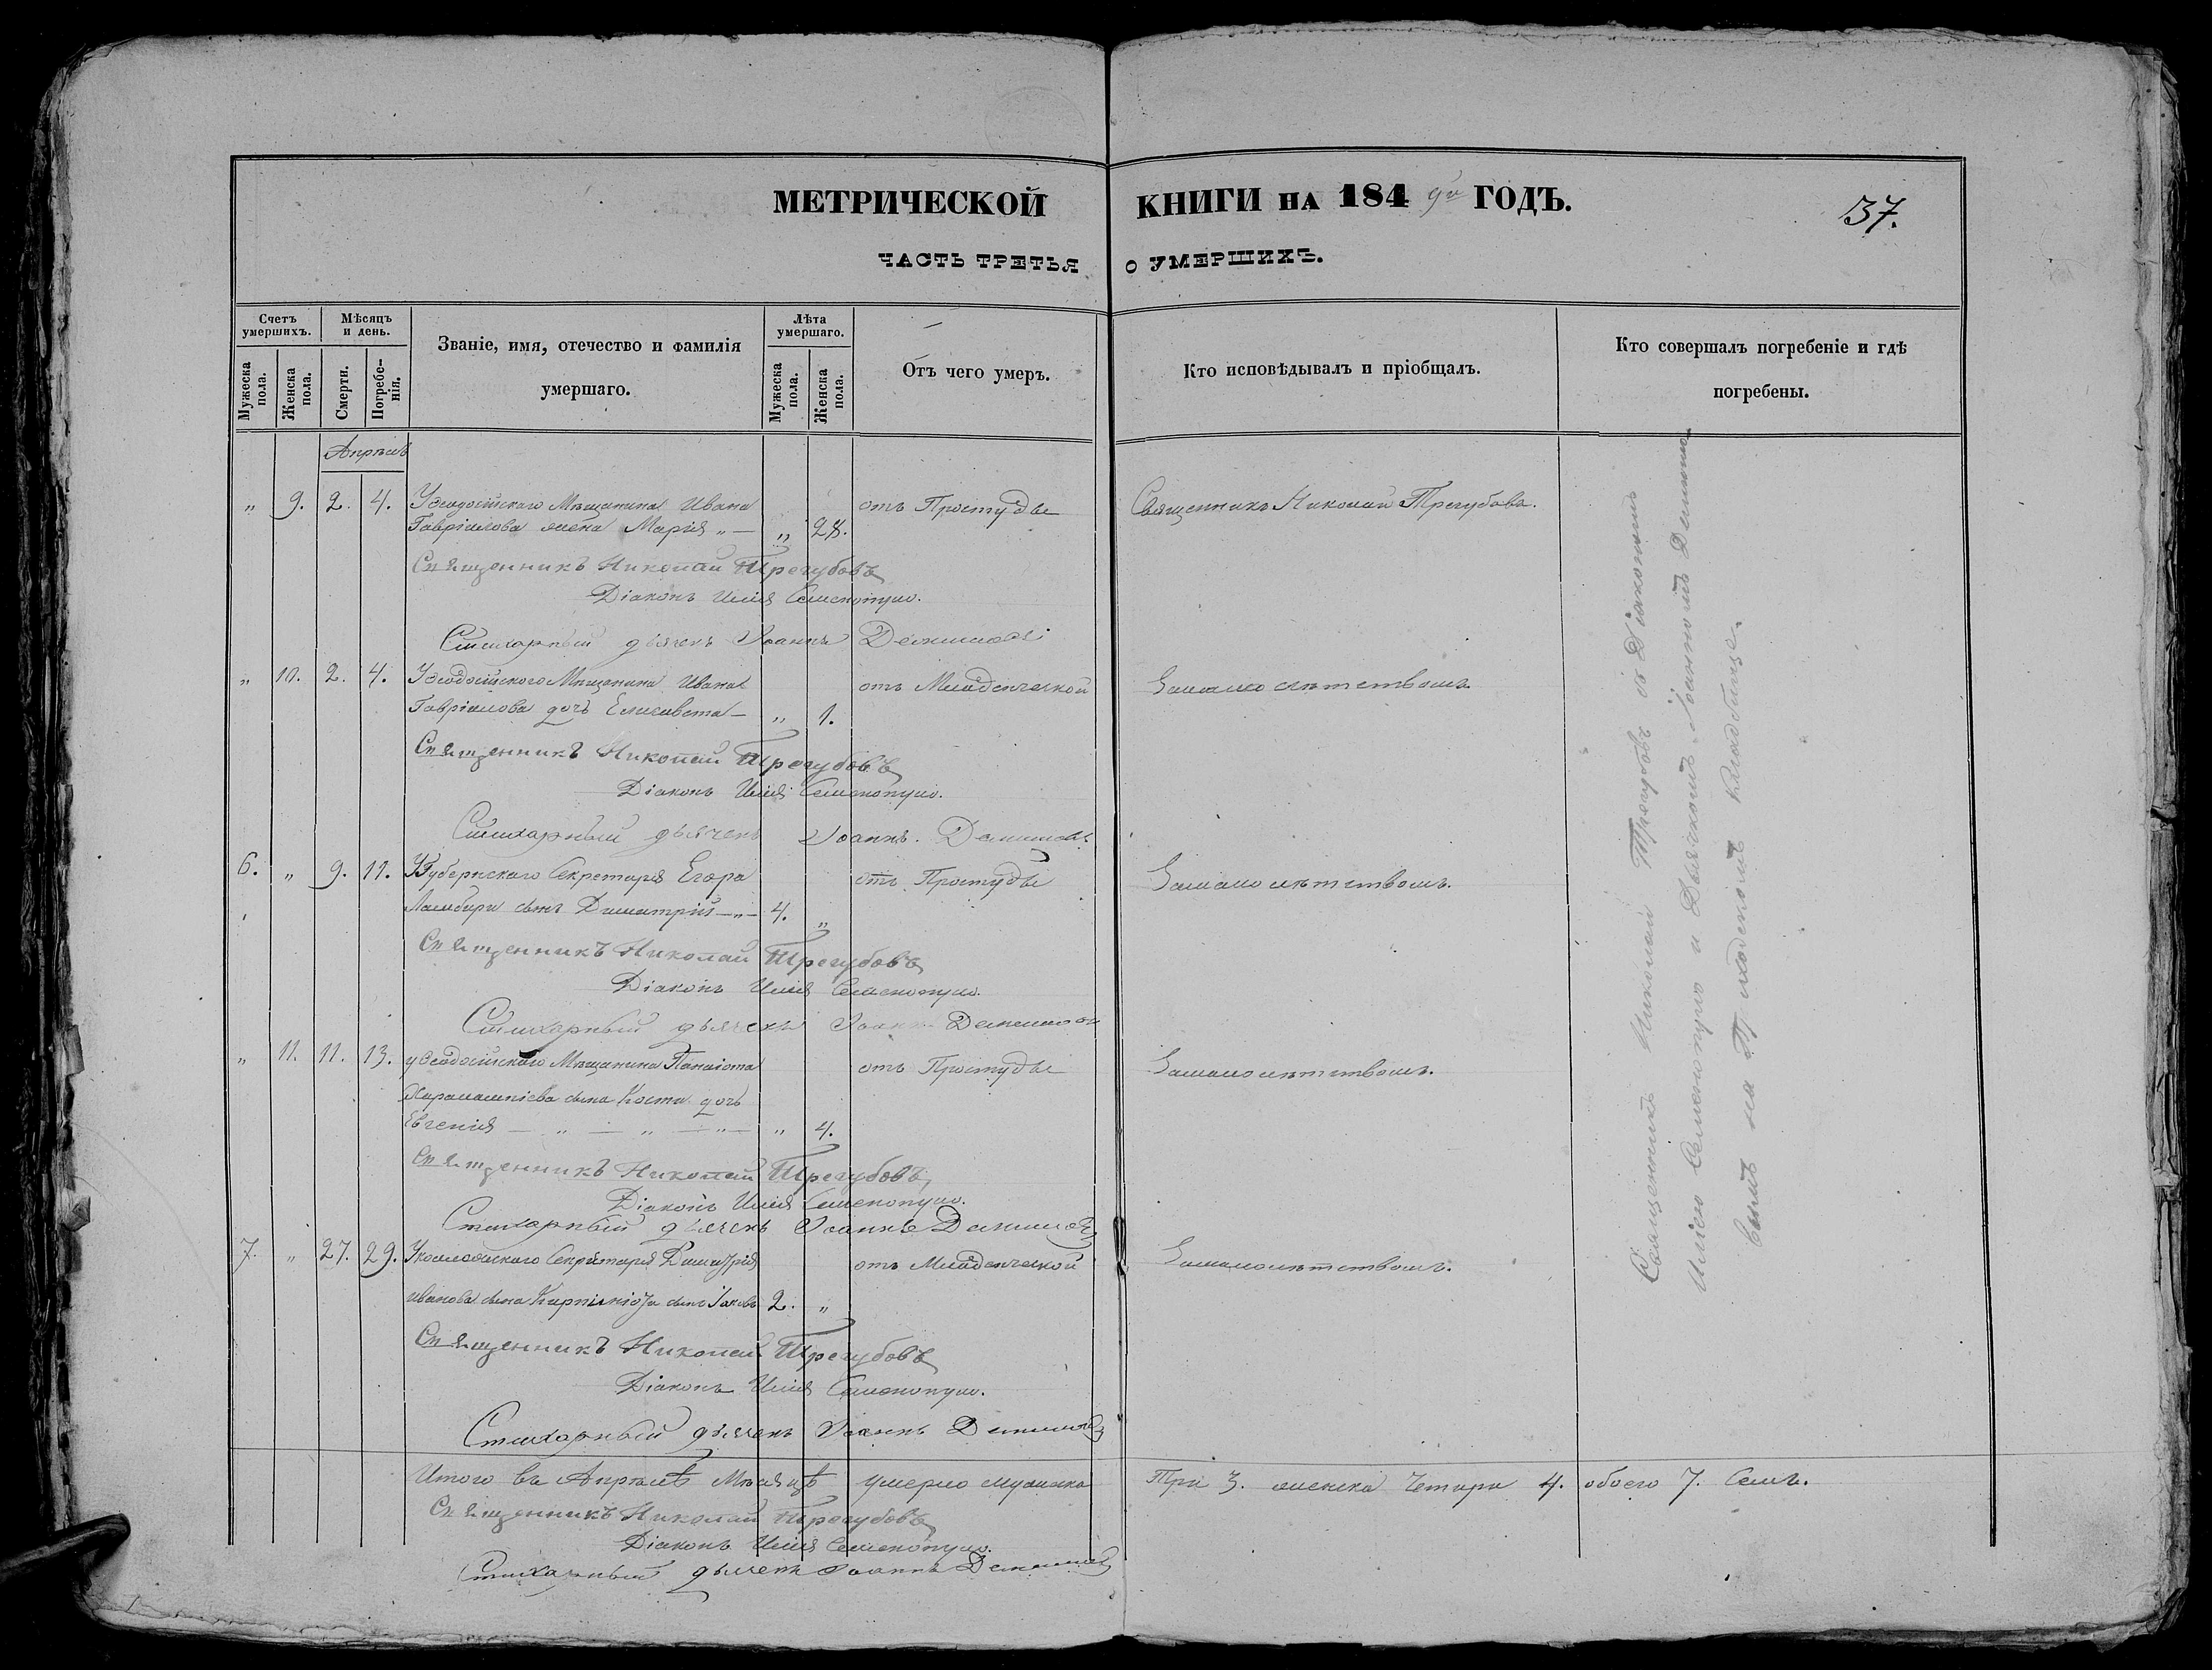 МЕТРИЧЕСКОЙ КНИГИ НА 184 9го ГОДЪ.
37.
ЧАСТЬ ТРЕТЬЯ О УМЕРШИХЪ.
Счетъ умершихъ.
Мужеска пола.
Женска пола.
Мѣсяцъ и день.
Смерти.
Погребенія.
Званіе, имя, отечество и фамилія
умершаго.
Лѣта умершаго.
Мужеска пола.
Женска пола.
Отъ чего умеръ.
Кто исповѣдывалъ и пріобщалъ.
Кто совершалъ погребеніе и гдѣ
погребены.
Апрѣль
„ 9. 2. 4. Уѳеодосійскаго Мѣщанина Ивана отъ Простуды Священникъ Николай Трегубовъ.
Гавріилова жена Марія „ — „ 28.
Священникъ Николай Трегубовъ
Діаконъ Илія Семенопуло.
Стихарный дьячекъ Іоаннъ
„ 10. 2. 4. Уѳеодосійскаго Мѣщанина Ивана отъ Младенческой Замалолѣтствомъ.
Гавріилова дочь Елисавета — „ 1.
Священникъ Николай Трегубовъ
Діаконъ Илія Семенопуло.
Стихарный дьячекъ Іоаннъ
6. „ 9. 11. УГубернскаго Секретаря Егора отъ Простуды Замалолѣтствомъ.
Ламбири сынъ Димитрій — „ — 4. „
Священникъ Николай Трегубовъ
Діаконъ Илія Семенопуло.
Стихарный дьячекъ Іоаннъ
„ 11. 11. 13. уѲеодосійскаго Мѣщанина Панаіота отъ Простуды Замалолѣтствомъ.
Харалампіева сына Коста дочь
Евгенія — „ — „ — „ — „ 4.
Священникъ Николай Трегубовъ
Діаконъ Илія Семенопуло.
Стихарный дьячекъ Іоаннъ
7. „ 27. 29. Уколлежскаго Секретаря Димитрія отъ Младенческой Замалолѣтствомъ.
Иванова сына сынъ Іаковъ 2. „
Священникъ Николай Трегубовъ
Діаконъ Илія Семенопуло.
Стихарный дьячекъ Іоаннъ
Священникъ Николай Трегубовъ съ Діакономъ
Иліею Семенопуло и Дьячкомъ Іоанномъ
на Приходскомъ Кладбище.
Итого въ Апрѣлѣ Мѣсяцѣ умерло мужеска Три 3. женска Четыри 4. обоего 7. Семь.
Священникъ Николай Трегубовъ
Діаконъ Илія Семенопуло.
Стихарный дьячекъ Іоаннъ